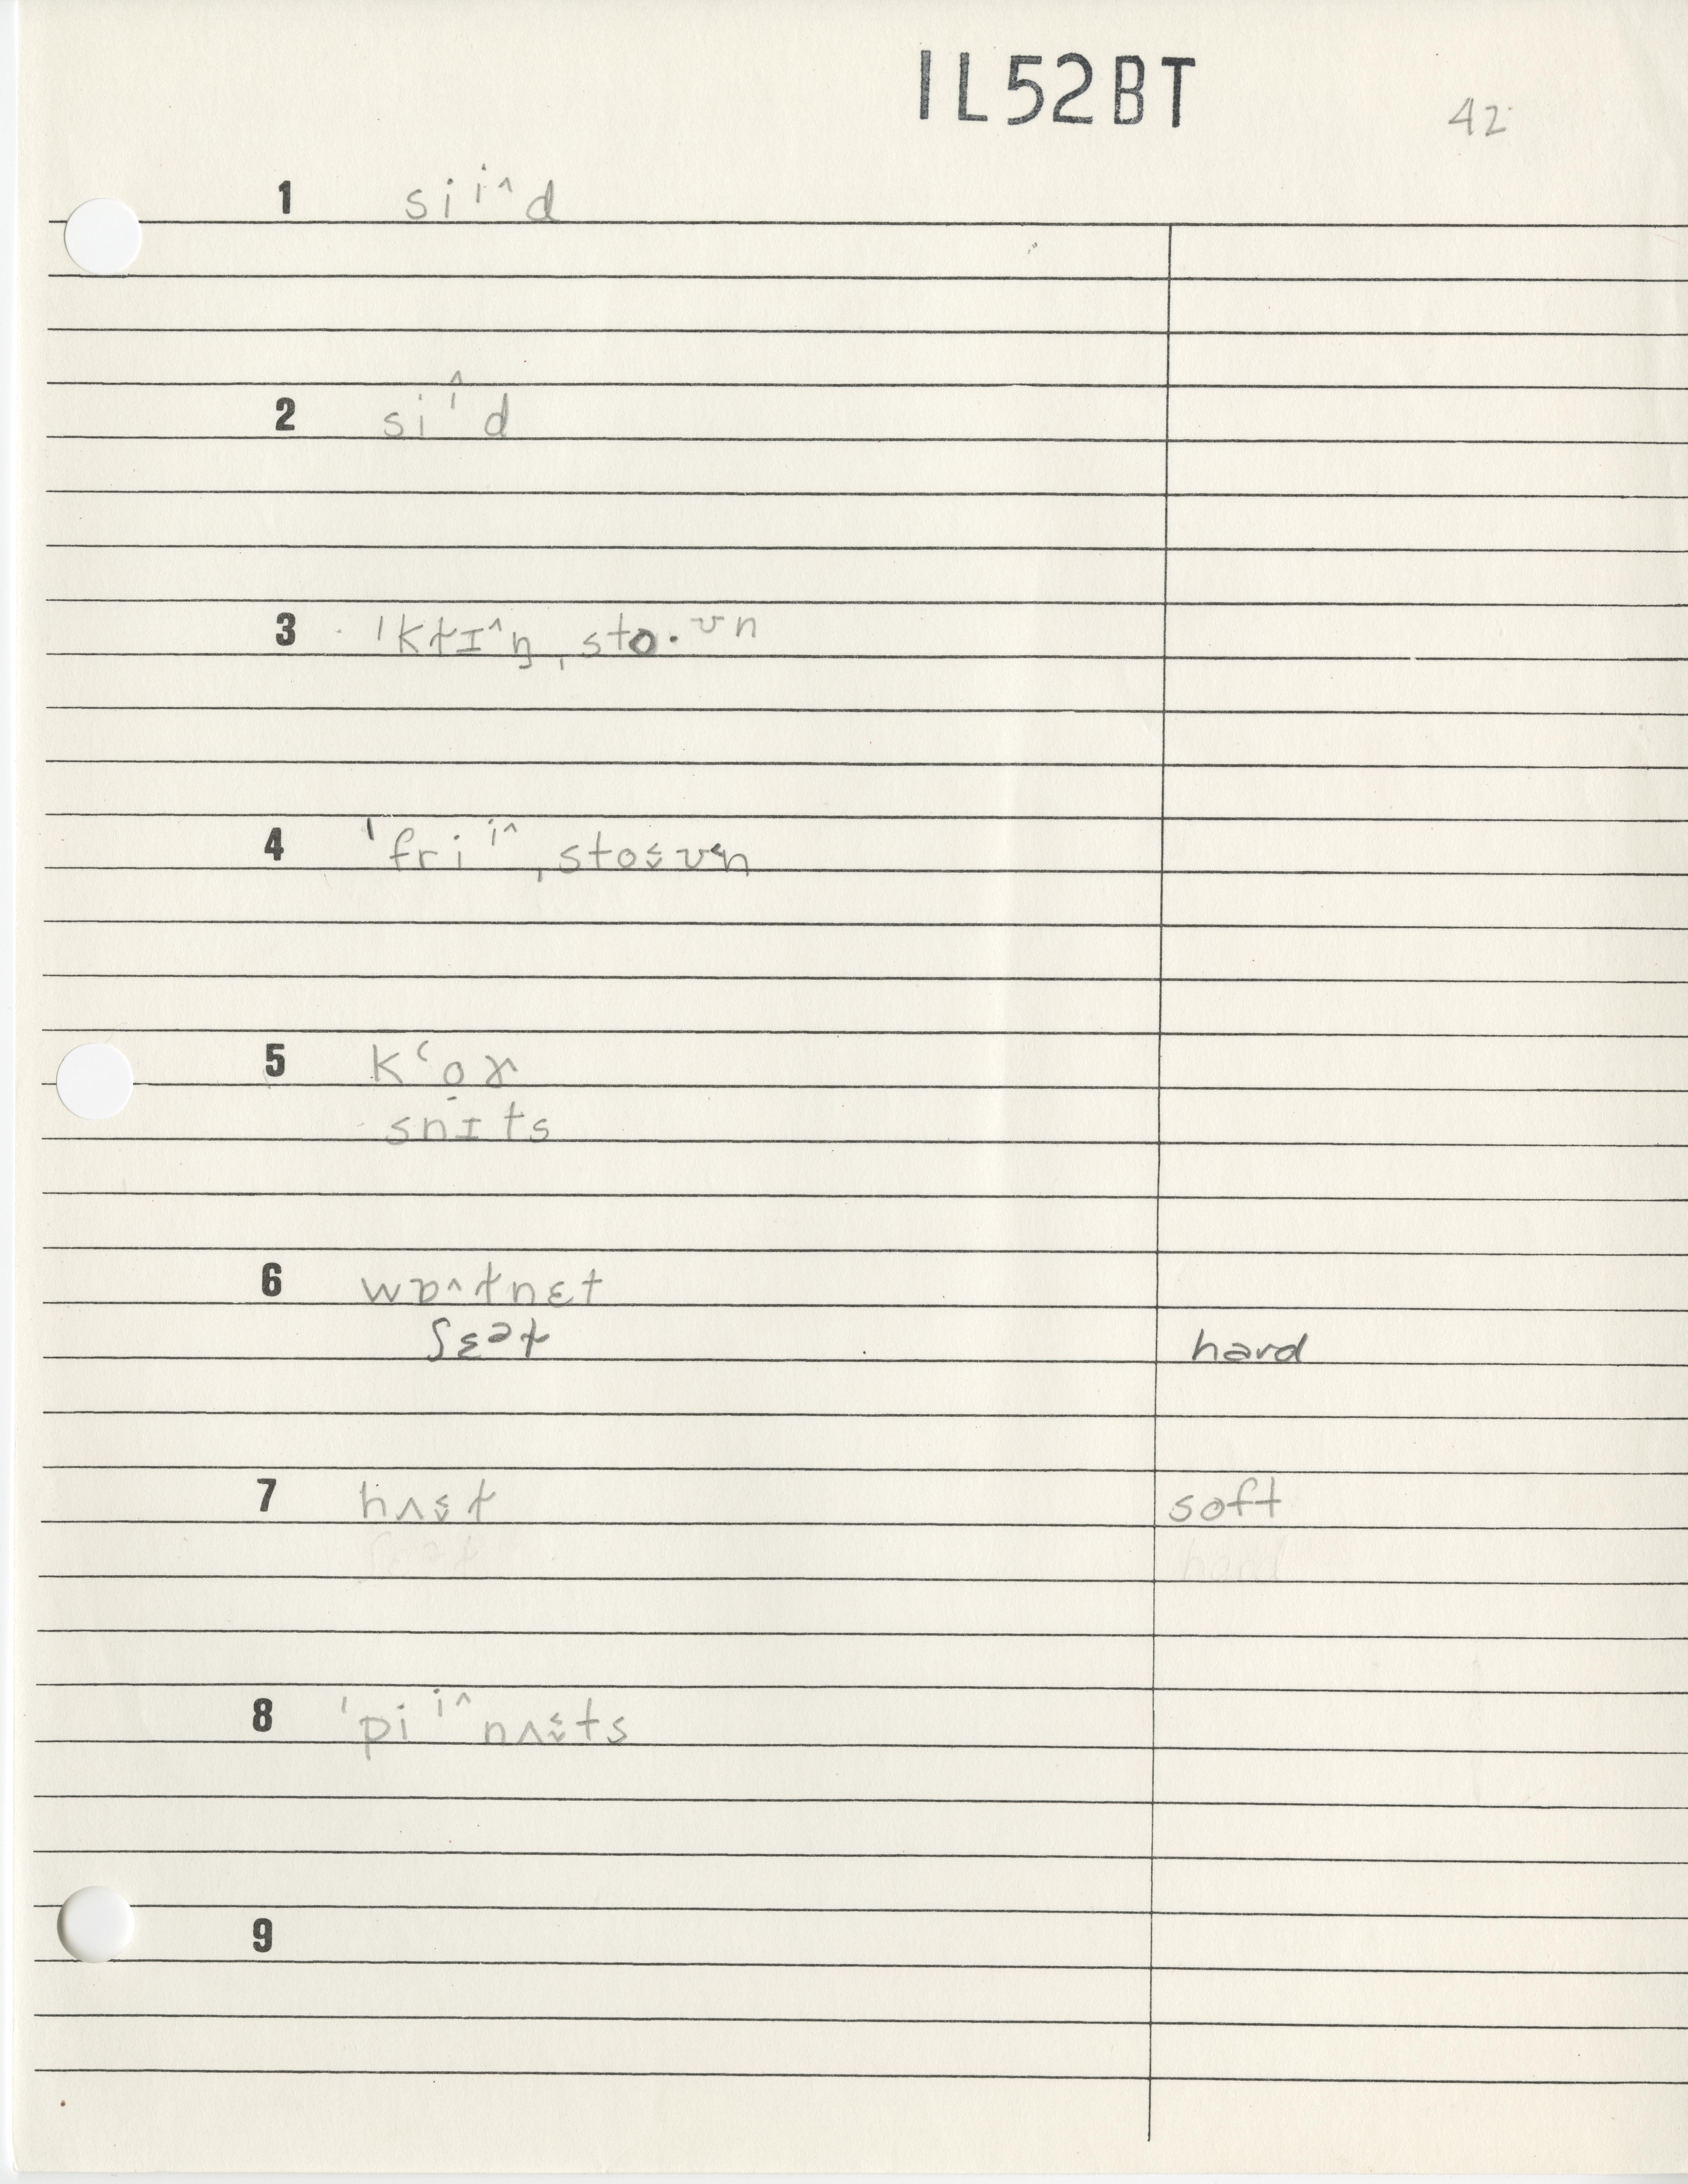 1L52BT 42
1 siⁱ^d
2 siⁱ^d
3 'kɫɪ^ŋ ˌsto·ᶷn
4 'friⁱ^ ˌsto˱˯ʊ˂n
5 kʻo̠ɚ
snɪts
6 wɒ^ɫnɛt
ʃɛᵊɫ hard
7 hʌ˱˯ɫ soft
8 'piⁱ^nʌ˱˯ts
9